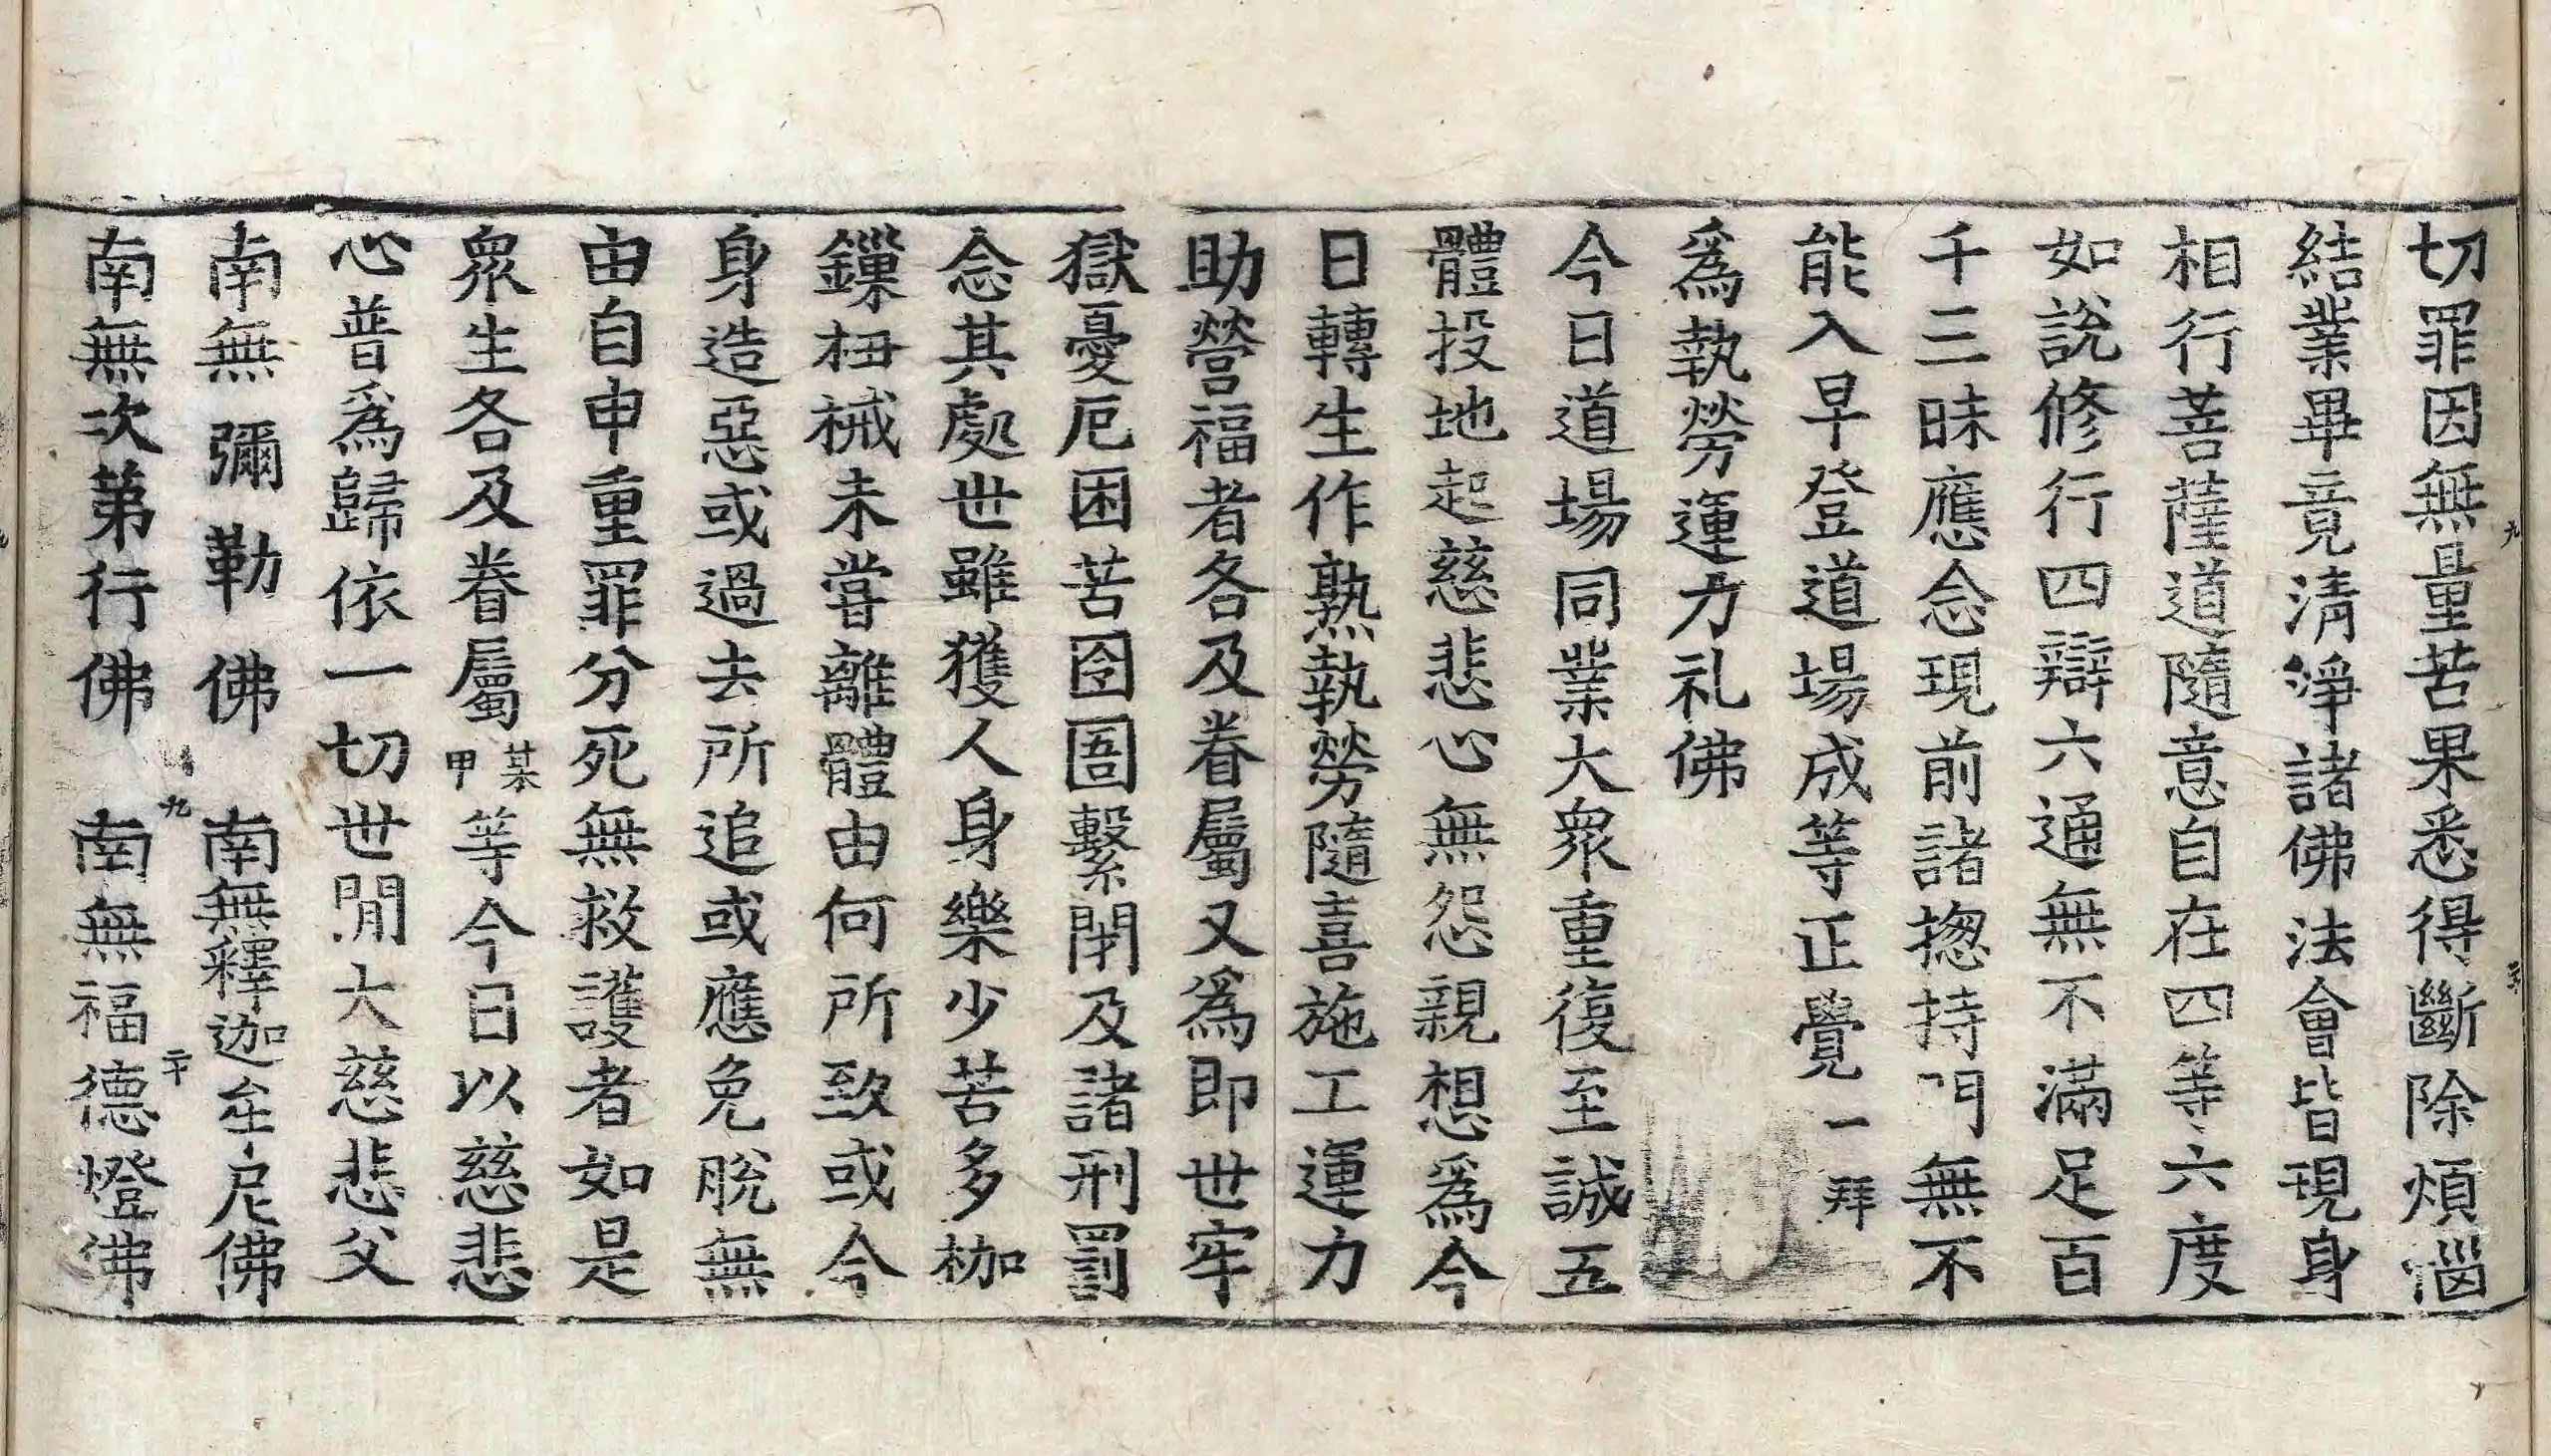 切罪因無量苦果悉得斷除煩惱
結業畢竟清淨諸佛法會皆現身
相行菩薩道隨意自在四等六度
如說修行四辯六通無不滿足百
千三昧應念現前諸揔持門無不
能入早登道場成等正覺一拜
爲執勞運力礼佛
今日道場同業大衆重復至誠五
體投地起慈悲心無怨親想爲今
日轉生作熟執勞隨喜施工運力
助營福者各及眷屬又爲即世牢
獄憂厄困苦囹圄繫閉及諸刑罰
念其處世雖獲人身樂少苦多枷
鏁杻械未嘗離體由何所致或今
身造惡或過去所追或應免脫無
由自申重罪分死無救護者如是
衆生各及眷屬某甲等今日以慈悲
心普爲歸依一切世閒大慈悲父
南無彌勒佛 南無釋迦牟尼佛
九 二十
南無次第行佛 南無福德燈佛